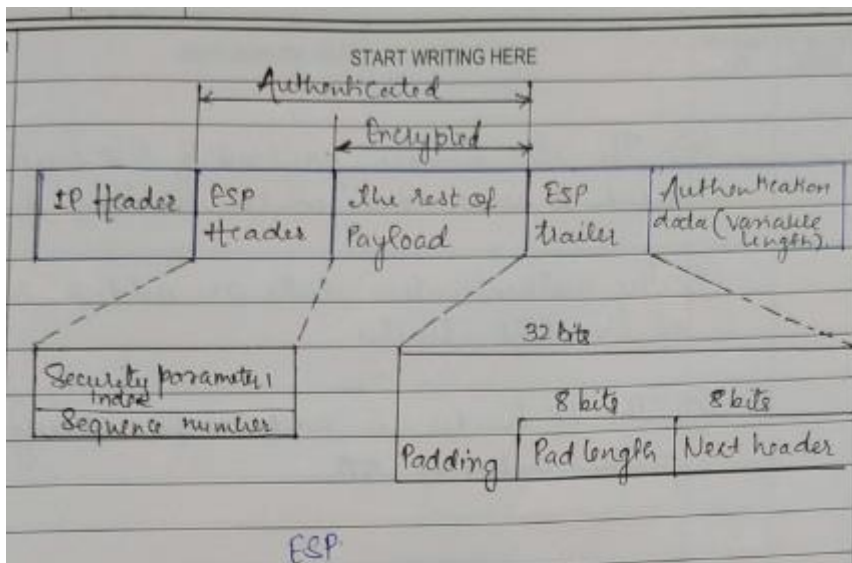 START WRITING HERE
Authenticated
Encrypted
IP Header
ESP
Header
the rest of
Payload
ESP
trailer
Authentication
data (variable
length)
32 bits
Security parameter,
Index
Sequence number
8 bits
8 bits
Padding
Pad length
Next header
ESP